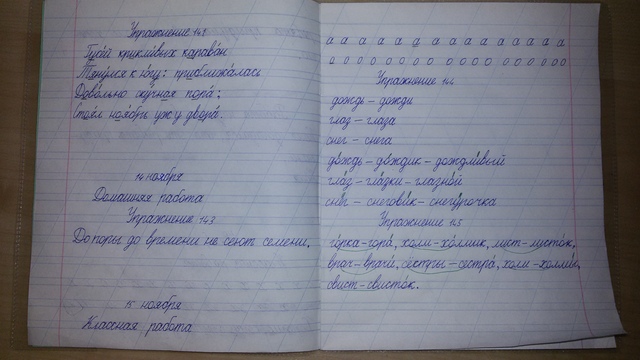 Упражнение 141
Гусей крикливых караван
Тянулся к югу: приближалась
Довольно скучная пора;
Стоял ноябрь уж у двора.
14 ноября
Домашняя работа
Упражнение 143
До поры до времени не сеют семени,
15 ноября
Классная работа
а а а а а а а а а а а а а а а а
о о о о о о о о о о о о о о о о
Упражнение 144
дождь – дожди
глаз – глаза
снег – снега
дождь – дождик – дождливый
глаз – глазки – глазной
снег – снеговик – снегурочка
Упражнение 145
горка – гора, холм – холмик, лист – листок,
врач – врачи, сестры – сестра, холм – холмик,
свист – свисток.